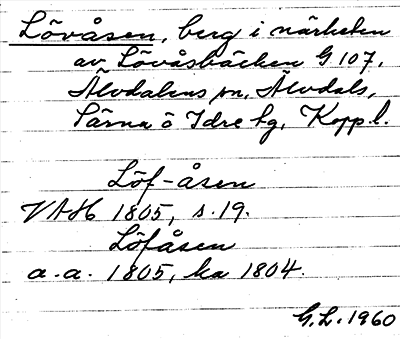 Lövåsen, berg i närheten
av Lövåsbäcken G 107,
Älvdalens sn, Älvdals,
Särna o Idre tg, Kopp.l.
Löf-åsen
VAH 1805, s. 19.
Löfåsen
a.a. 1805, ka 1804.
G.L. 1960